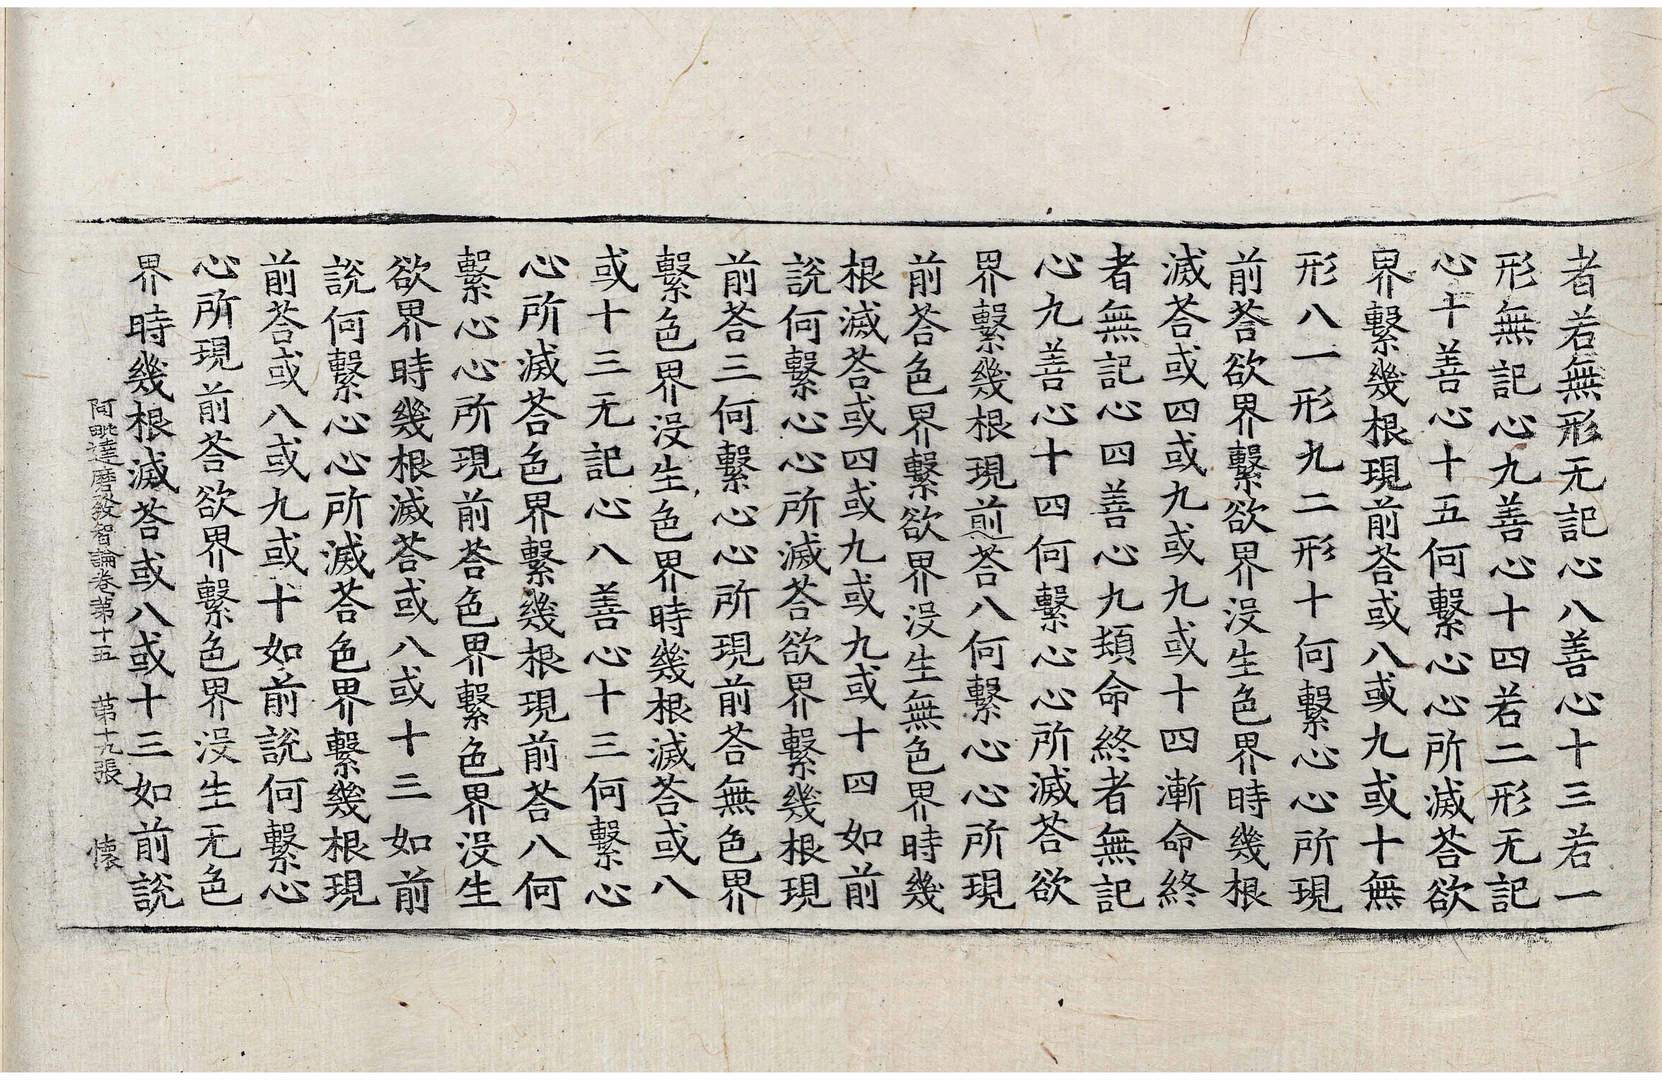 者若無形无記心八善心十三若一
形無記心九善心十四若二形无記
心十善心十五何繫心心所滅荅欲
界繫幾根現前荅或八或九或十無
形八一形九二形十何繫心心所現
前荅欲界繫欲界沒生色界時幾根
滅荅或四或九或九或十四漸命終
者無記心四善心九頓命終者無記
心九善心十四何繫心心所滅荅欲
界繫幾根現前荅八何繫心心所現
前荅色界繫欲界沒生無色界時幾
根滅荅或四或九或九或十四如前
說何繫心心所滅荅欲界繫幾根現
前荅三何繫心心所現前荅無色界
繫色界沒生色界時幾根滅荅或八
或十三无記心八善心十三何繫心
心所滅荅色界繫幾根現前荅八何
繫心心所現前荅色界繫色界沒生
欲界時幾根滅荅或八或十三如前
說何繫心心所滅荅色界繫幾根現
前荅或八或九或十如前說何繫心
心所現前荅欲界繫色界沒生无色
界時幾根滅荅或八或十三如前說
阿毗達磨發智論卷苐十五　苐十九張　懷